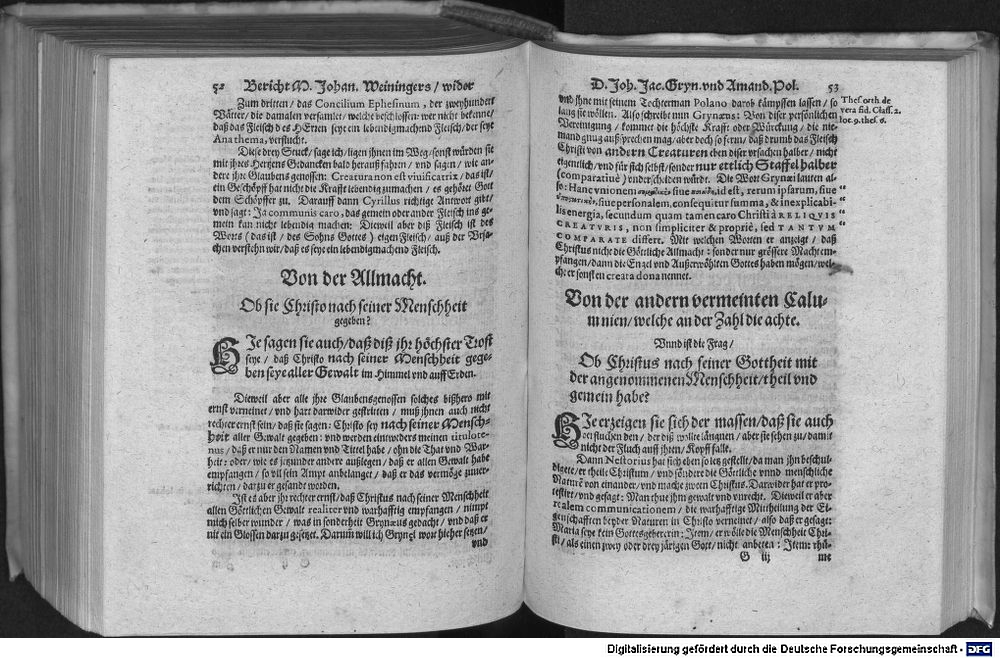 52 Bericht M. Johan. Weiningers / wider
Zum dritten / das Concilium Ephesinum, der zweyhundert
Vätter / die damalen versamlet / welche beschlossen: wer nicht bekenne /
daß das Fleisch des HErren seye ein lebendigmachend Fleisch / der seye
Anathema, verflucht.
Diese drey Stuck / sage ich / ligen jhnen im Weg / sonst würden sie
mit jhres Hertzens Gedancken bald herauß fahren / und sagen / wie an-
dere jhre Glaubens genossen: Creatura non est viuificatrix, das ist /
ein Geschöpff hat nicht die Krafft lebendig zumachen / es gehöret Gott
dem Schöpffer zu. Darauff dann Cyrillus richtig Antwort gibt /
vnd sagt: Ja communis caro, das gemein oder ander Fleisch ins ge-
mein kan nicht lebendig machen: Dieweil aber diß Fleisch ist des
Worts (das ist / des Sohns Gottes) eigen Fleisch / auß der Vrsa-
chen verstehn wir / daß es seye ein lebendigmachend Fleisch.
Von der Allmacht.
Ob sie Christo nach seiner Menschheit
gegeben?
HJe sagen sie auch / daß diß jhr höchster Trost
seye / daß Christo nach seiner Menschheit gege-
ben seye aller Gewalt im Himmel und auff Erden.
Dieweil aber alle jhre Glaubensgenossen solches bißhero mit
ernst verneinet / vnd hart darwider gestritten / muß jhnen auch nicht
rechter ernst sein / daß sie sagen: Christo sey nach seiner Mensch-
heit aller Gewalt gegeben: vnd werden eintweders meinen titulote-
nus, daß er nur den Namen vnd Tittel habe / ohn die That vnd War-
heit: oder / wie es jetzunder andere außlegen / daß er allen Gewalt habe
empfangen / so vil sein Ampt anbelanget / daß er das vermöge zuuer-
richten / darzu er gesandt worden.
Ist es aber jhr rechter ernst / daß Christus nach seiner Menschheit
allen Göttlichen Gewalt realiter vnd warhafftig empfangen / nimpt
mich selber wunder / was in sonderheit Grynæus gedacht / vnd daß er
mit ein Glossen darzu gesetzet. Darumb will ich Grynæi wort hieher setzen /
vnd
D. Joh. Jac. Gryn. vnd Amand. Pol. 53
vnd jhne mit seinem Tochterman Polano darob kämpffen lassen / so
lang sie wöllen. Also schreibet nun Grynæus: Von diser persönlichen
Vereinigung / kommet die höchste Krafft oder Würckung / die nie-
mand gnug außsprechen mag / aber doch so fern / daß drumb das Fleisch
Christi von andern Creaturen eben diser vrsachen halber / nicht
eigentlich / vnd für sich selbst / sonder nur ettlich Staffel halber
(comparatiuè) vnderscheiden würdt. Die Wort Grynæi lauten al-
so: Hanc vnionem siue id est, rerum ipsarum, siue
siue personalem, consequitur summa, & inexplicabi-
lis energia, secundum quam tamen caro Christi à RELIQVIS
CREATVRIS, non simpliciter & propriè, sed TANTVM
COMPARATE differt. Mit welchen Worten er anzeigt / daß
Christus nicht die Göttliche Allmacht: sonder nur grössere Macht em-
pfangen / dann die Engel vnd Außerwöhlten Gottes haben mögen / wel-
che er sonsten creata dona nennet.
Thes. orth. de
vera fid. Class. 2.
loc. 9. thes. 6.
Von der andern vermeinten Calu-
mnien / welche an der Zahl die achte.
Vnnd ist die Frag /
Ob Christus nach seiner Gottheit mit
der angenommenen Menschheit / theil vnd
gemein habe?
HJe erzeigen sie sich der massen / daß sie auch
verfluchen den / der diß wolte läugnen / aber sie sehen zu / damit
nicht der Fluch auff jhren / Kopff falle.
Dann Nestorius hat sich eben so letz gestellt / da man jhn beschul-
digete / er theile Christum / vnd söndere die Göttliche vnnd menschliche
Naturē von einander / vnd mache zween Christus. Darwider hat er pro-
testirt / vnd gesagt: Man thue jhm gewalt vnd vnrecht. Dieweil er aber
realem communicationem, die warhafftige Mittheilung der Ei-
genschafften beyder Naturen in Christo verneinet / also daß er gesagt:
Maria seye kein Gottesgebererin: Item / er wölle die Menschheit Chri-
sti / als einen zwey oder drey järigen Gott / nicht anbeten: Item: rhü-
G iij me
Digitalisierung gefördert durch die Deutsche Forschungsgemeinschaft - DFG